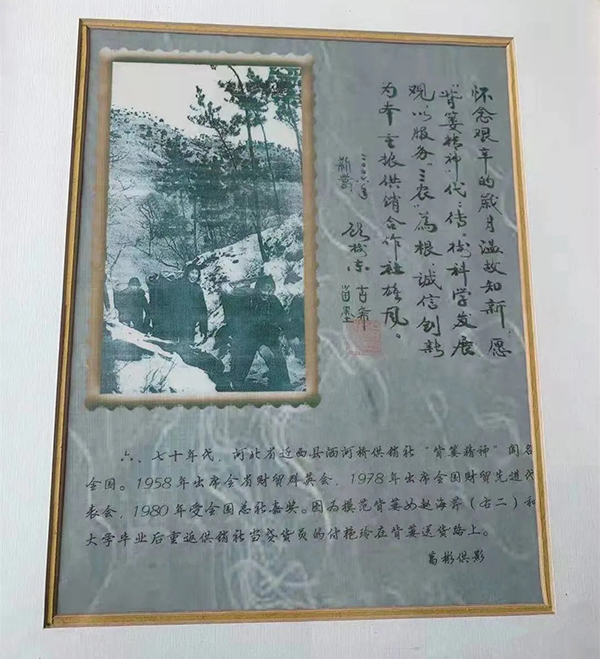 怀念艰辛的岁月温故知新愿
“背篓精神”代代传。树科学发展
观以服务“三农”为根诚信创新
为本重振供销合作社雄风。
二〇〇八年 新春
古希
六、七十年代，河北省迁西县洒河桥供销社“背篓精神”闻名
全国。1958年出席全省财贸群英会，1978年出席全国财贸先进代
表会，1980年受全国总社嘉奖。因为模范背篓女赵海芹（右二）和
大学毕业后重返供销社当炊货员的付艳玲在背篓送货路上。
葛彬供影